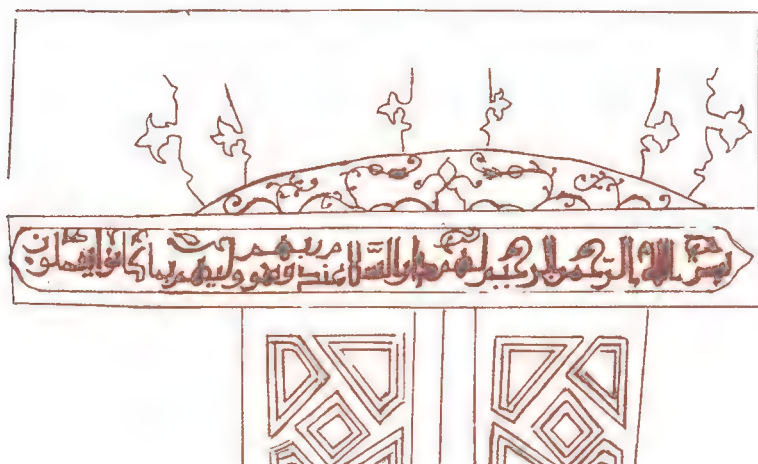 بسم الله الرحمن الرحيم لهم دار السلام عند ربهم وهو وليهم بما كانوا يعملون